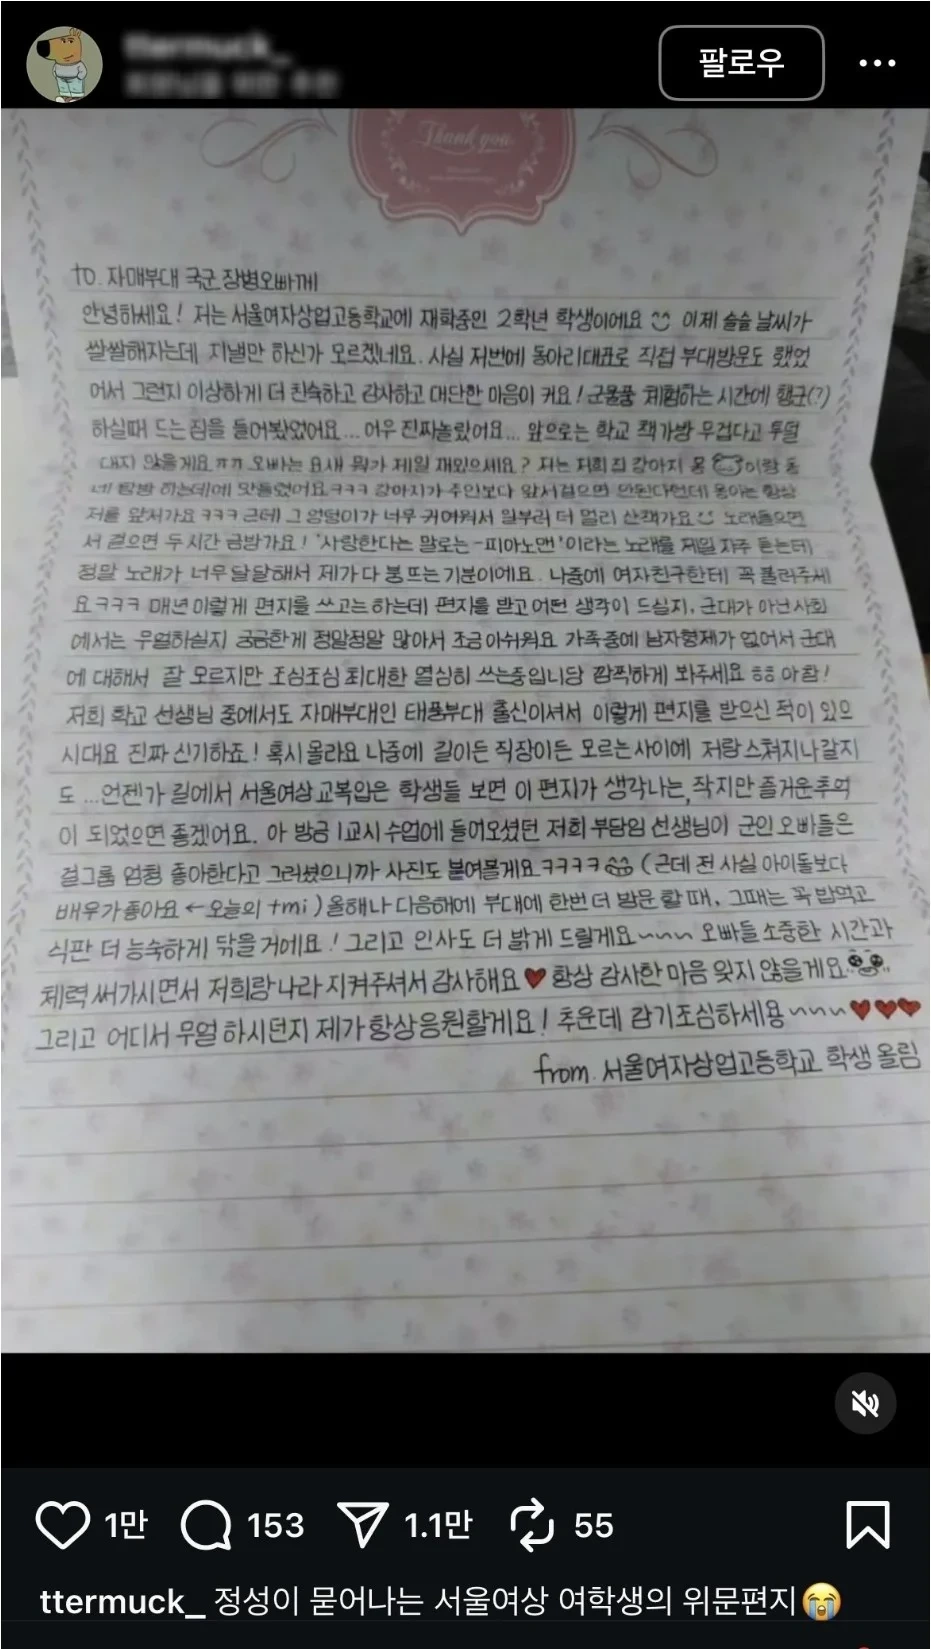 팔로우
Thank you
to. 자매부대 국군장병오빠께
안녕하세요! 저는 서울여자상업고등학교에 재학중인 2학년 학생이에요 이제 슬슬 날씨가
쌀쌀해지는데 지낼만 하신가 모르겠네요. 사실 저번에 동아리대표로 직접 부대방문도 했었
어서 그런지 이상하게 더 친숙하고 감사하고 대단한 마음이 커요! 군용품 체험하는 시간에 행군(?)
하실때 드는 짐을 들어봤었어요... 어우 진짜놀랐어요... 앞으로는 학교 책가방 무겁다고 투덜
대지 않을게요ㅠㅠ 오빠는 요새 뭐가 제일 재밌으세요? 저는 저희집 강아지 몽 이랑 동
네 탐방 하는데에 맛들렸어요ㅋㅋㅋ 강아지가 주인보다 앞서걸으면 안된다던데 몽이는 항상
저를 앞서가요ㅋㅋㅋ 근데 그 엉덩이가 너무 귀여워서 일부러 더 멀리 산책가요 노래들으면
서 걸으면 두시간 금방가요! '사랑한다는 말로는-피아노맨'이라는 노래를 제일 자주 듣는데
정말 노래가 너무 달달해서 제가 다 붕 뜨는 기분이에요. 나중에 여자친구한테 꼭 불러주세
요ㅋㅋㅋ 매년 이렇게 편지를 쓰고는 하는데 편지을 받고 어떤 생각이 드실지, 군대가 아닌 사회
에서는 무얼하실지 궁금한게 정말정말 많아서 조금 아쉬워요 가족중에 남자형제가 없어서 군대
에 대해서 잘 모르지만 조심조심 최대한 열심히 쓰는중입니당 깜찍하게 봐주세요 ㅎㅎ 아참!
저희 학교 선생님 중에서도 자매부대인 태풍부대 출신이셔서 이렇게 편지를 받으신 적이 있으
시대요 진짜 신기하죠! 혹시 몰라요 나중에 길이든 직장이든 모르는사이에 저랑 스쳐지나갈지
도 ...언젠가 길에서 서울여상 교복입은 학생들 보면 이 편지가 생각나는, 작지만 즐거운추억
이 되었으면 좋겠어요. 아 방금 1교시 수업에 들어오셨던 저희 부담임 선생님이 군인 오빠들은
걸그룹 엄청 좋아한다고 그러셨으니까 사진도 붙여볼게요ㅋㅋㅋㅋ (근데 전 사실 아이돌보다
배우가좋아요 ←오늘의 tmi) 올해나 다음해에 부대에 한번 더 방문 할 때, 그때는 꼭 밥먹고
식판 더 능숙하게 닦을 거에요! 그리고 인사도 더 밝게 드릴게요~~~ 오빠들 소중한 시간과
체력 써가시면서 저희랑 나라 지켜주셔서 감사해요♥ 항상 감사한 마음 잊지 않을게요
그리고 어디서 무얼 하시던지 제가 항상 응원할게요! 추운데 감기조심하세용~~~♥♥♥
from. 서울여자상업고등학교 학생 올림
1만 153 1.1만 55
ttermuck_ 정성이 묻어나는 서울여상 여학생의 위문편지😭